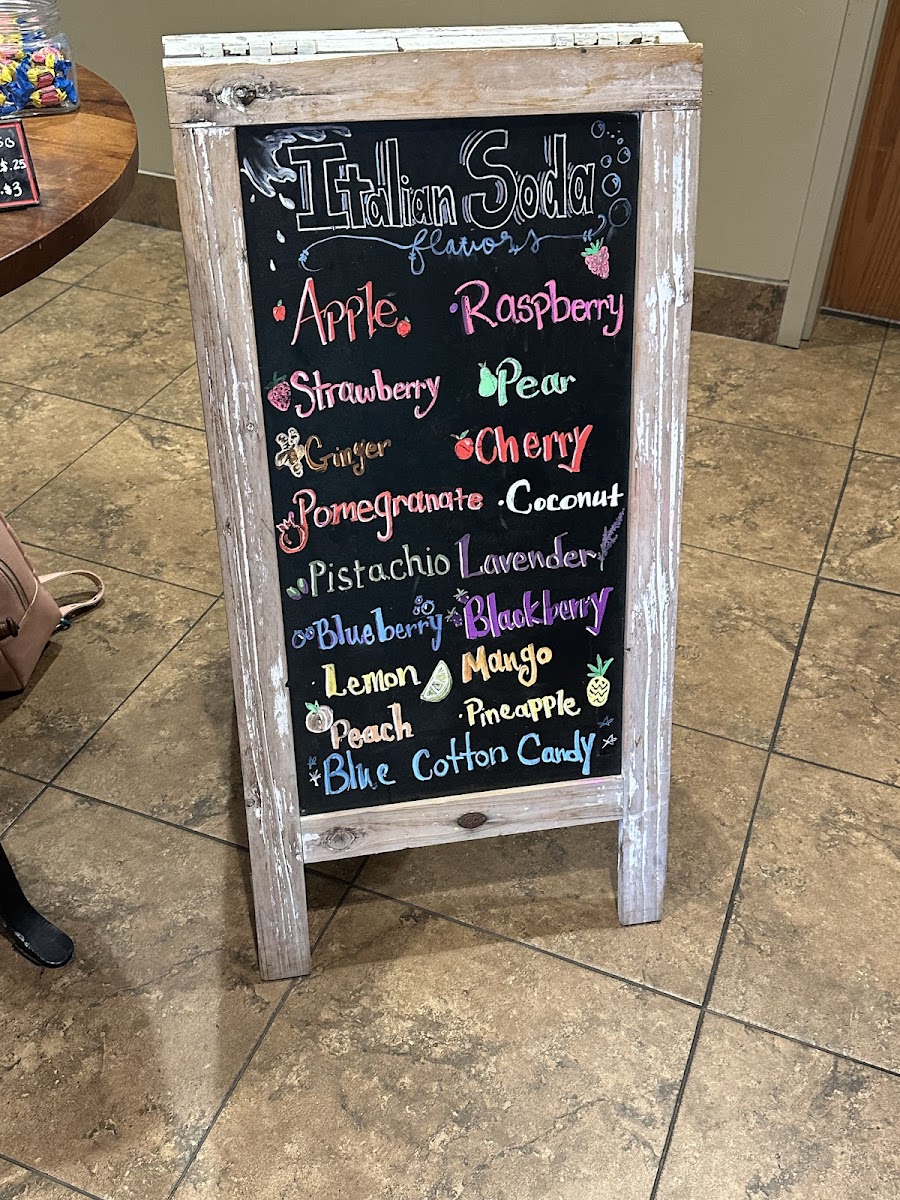 Italian Soda
flavors
Apple Raspberry
Strawberry Pear
Ginger Cherry
Pomegranate Coconut
Pistachio Lavender
Blueberry Blackberry
Lemon Mango
Peach Pineapple
Blue Cotton Candy
$.25
$3